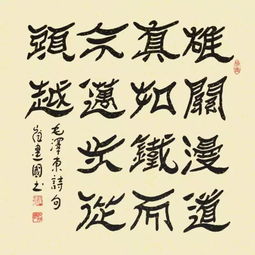 雄關漫道
真如鐵而
今邁步從
頭越
毛澤東詩句
建國书